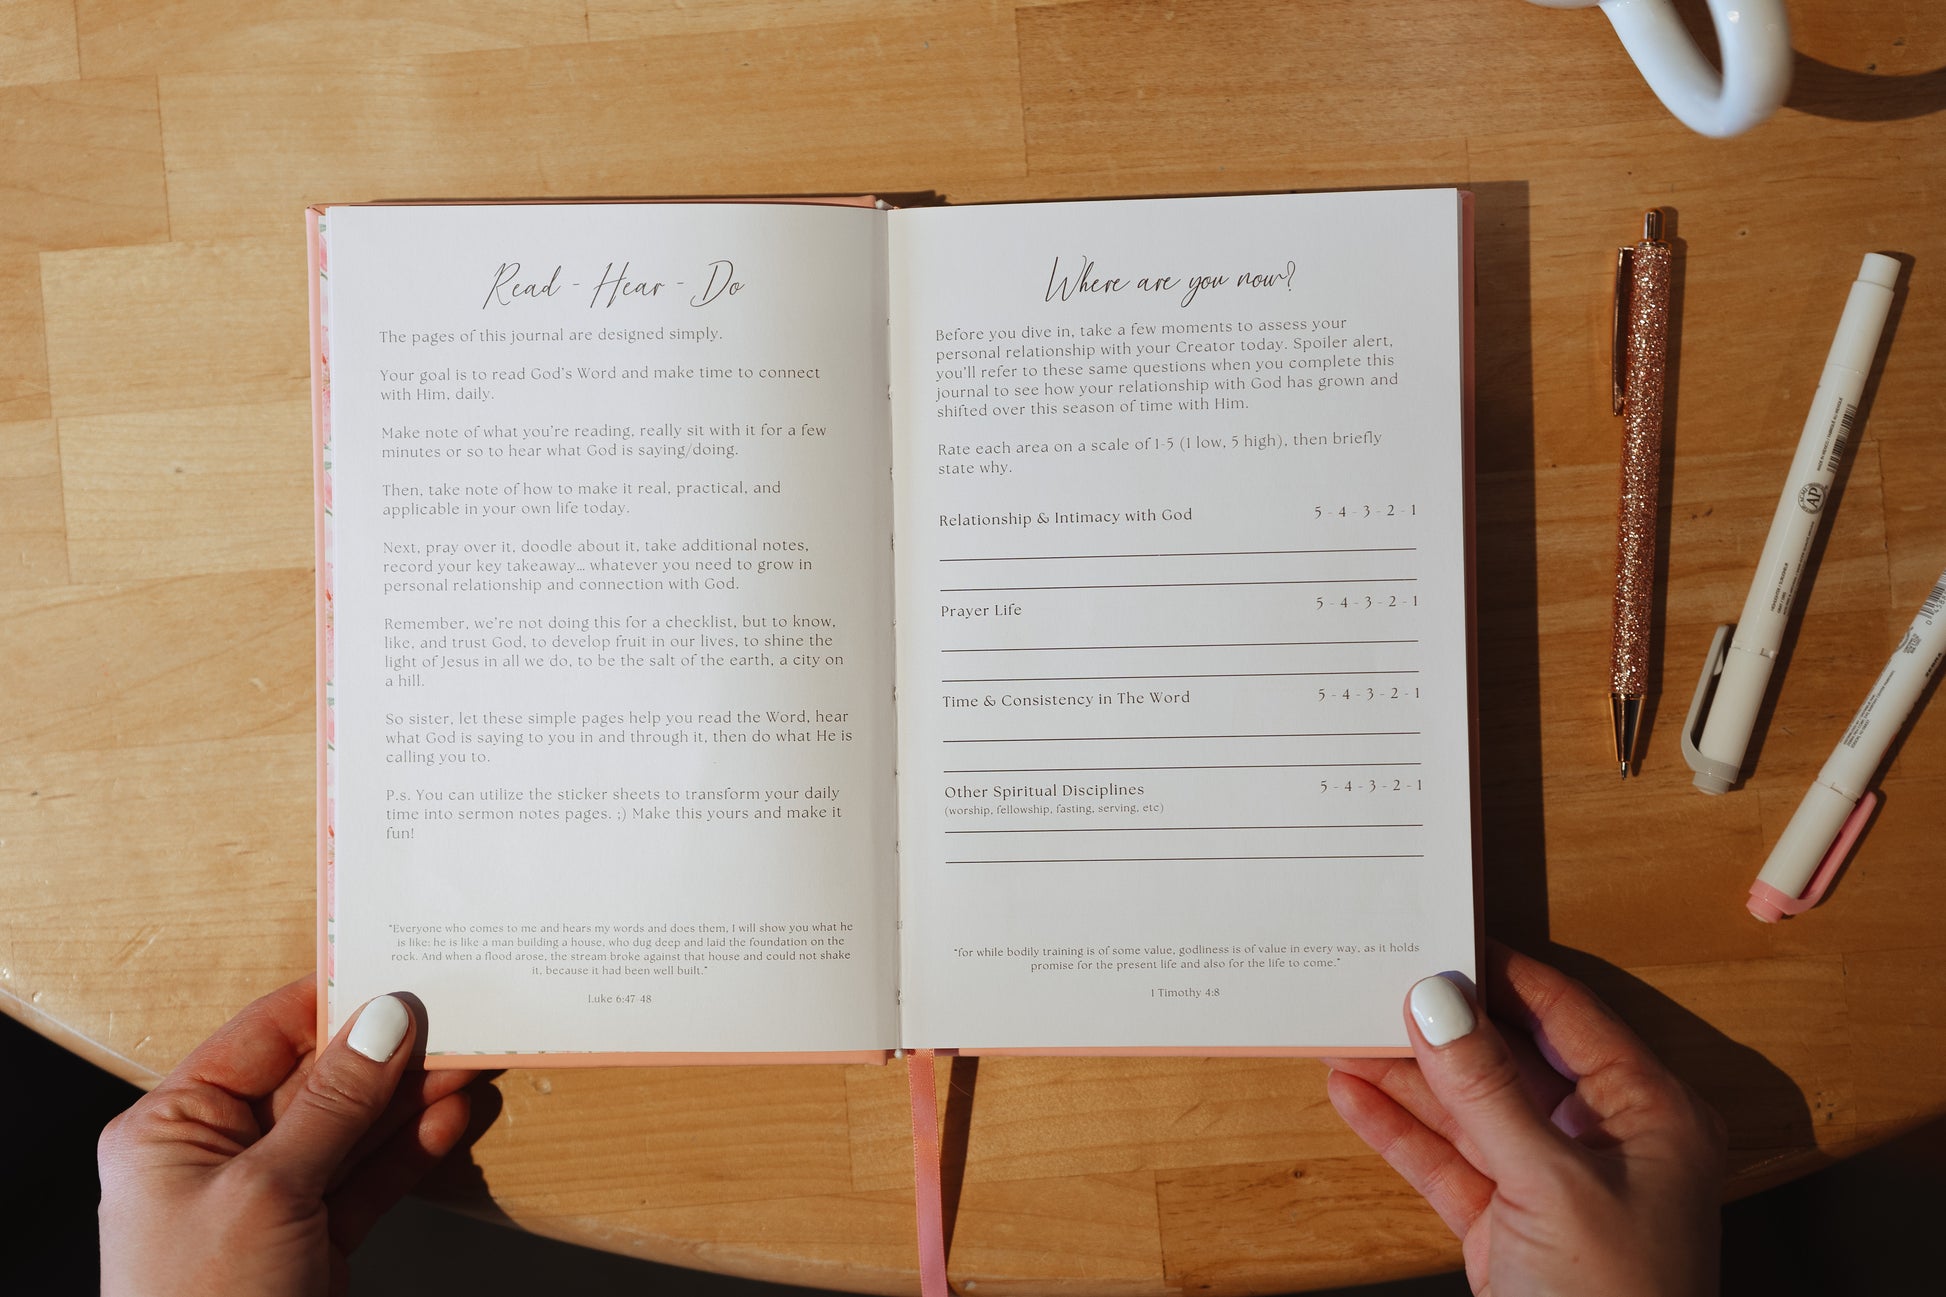 Read - Hear - Do
The pages of this journal are designed simply.
Your goal is to read God's Word and make time to connect
with Him, daily.
Make note of what you're reading, really sit with it for a few
minutes or so to hear what God is saying/doing.
Then, take note of how to make it real, practical, and
applicable in your own life today.
Next, pray over it, doodle about it, take additional notes,
record your key takeaway... whatever you need to grow in
personal relationship and connection with God.
Remember, we're not doing this for a checklist, but to know,
like, and trust God, to develop fruit in our lives, to shine the
light of Jesus in all we do, to be the salt of the earth, a city on
a hill.
So sister, let these simple pages help you read the Word, hear
what God is saying to you in and through it, then do what He is
calling you to.
P.s. You can utilize the sticker sheets to transform your daily
time into sermon notes pages. ;) Make this yours and make it
fun!
"Everyone who comes to me and hears my words and does them, I will show you what he
is like: he is like a man building a house, who dug deep and laid the foundation on the
rock. And when a flood arose, the stream broke against that house and could not shake
it, because it had been well built."
Luke 6:47-48
Where are you now?
Before you dive in, take a few moments to assess your
personal relationship with your Creator today. Spoiler alert,
you'll refer to these same questions when you complete this
journal to see how your relationship with God has grown and
shifted over this season of time with Him.
Rate each area on a scale of 1-5 (1 low, 5 high), then briefly
state why.
Relationship & Intimacy with God 5 - 4 - 3 - 2 - 1
Prayer Life 5 - 4 - 3 - 2 - 1
Time & Consistency in The Word 5 - 4 - 3 - 2 - 1
Other Spiritual Disciplines 5 - 4 - 3 - 2 - 1
(worship, fellowship, fasting, serving, etc)
"for while bodily training is of some value, godliness is of value in every way, as it holds
promise for the present life and also for the life to come."
1 Timothy 4:8
AP